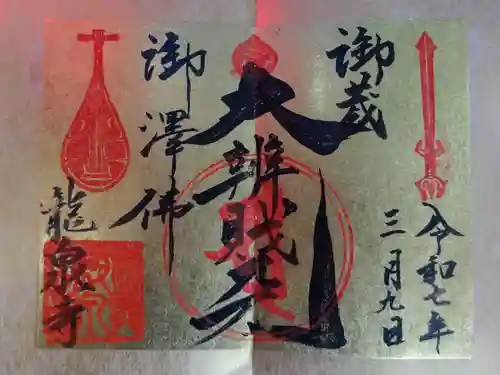 令和七年
三月九日
御蔵
大辨財天
御澤佛
龍泉寺